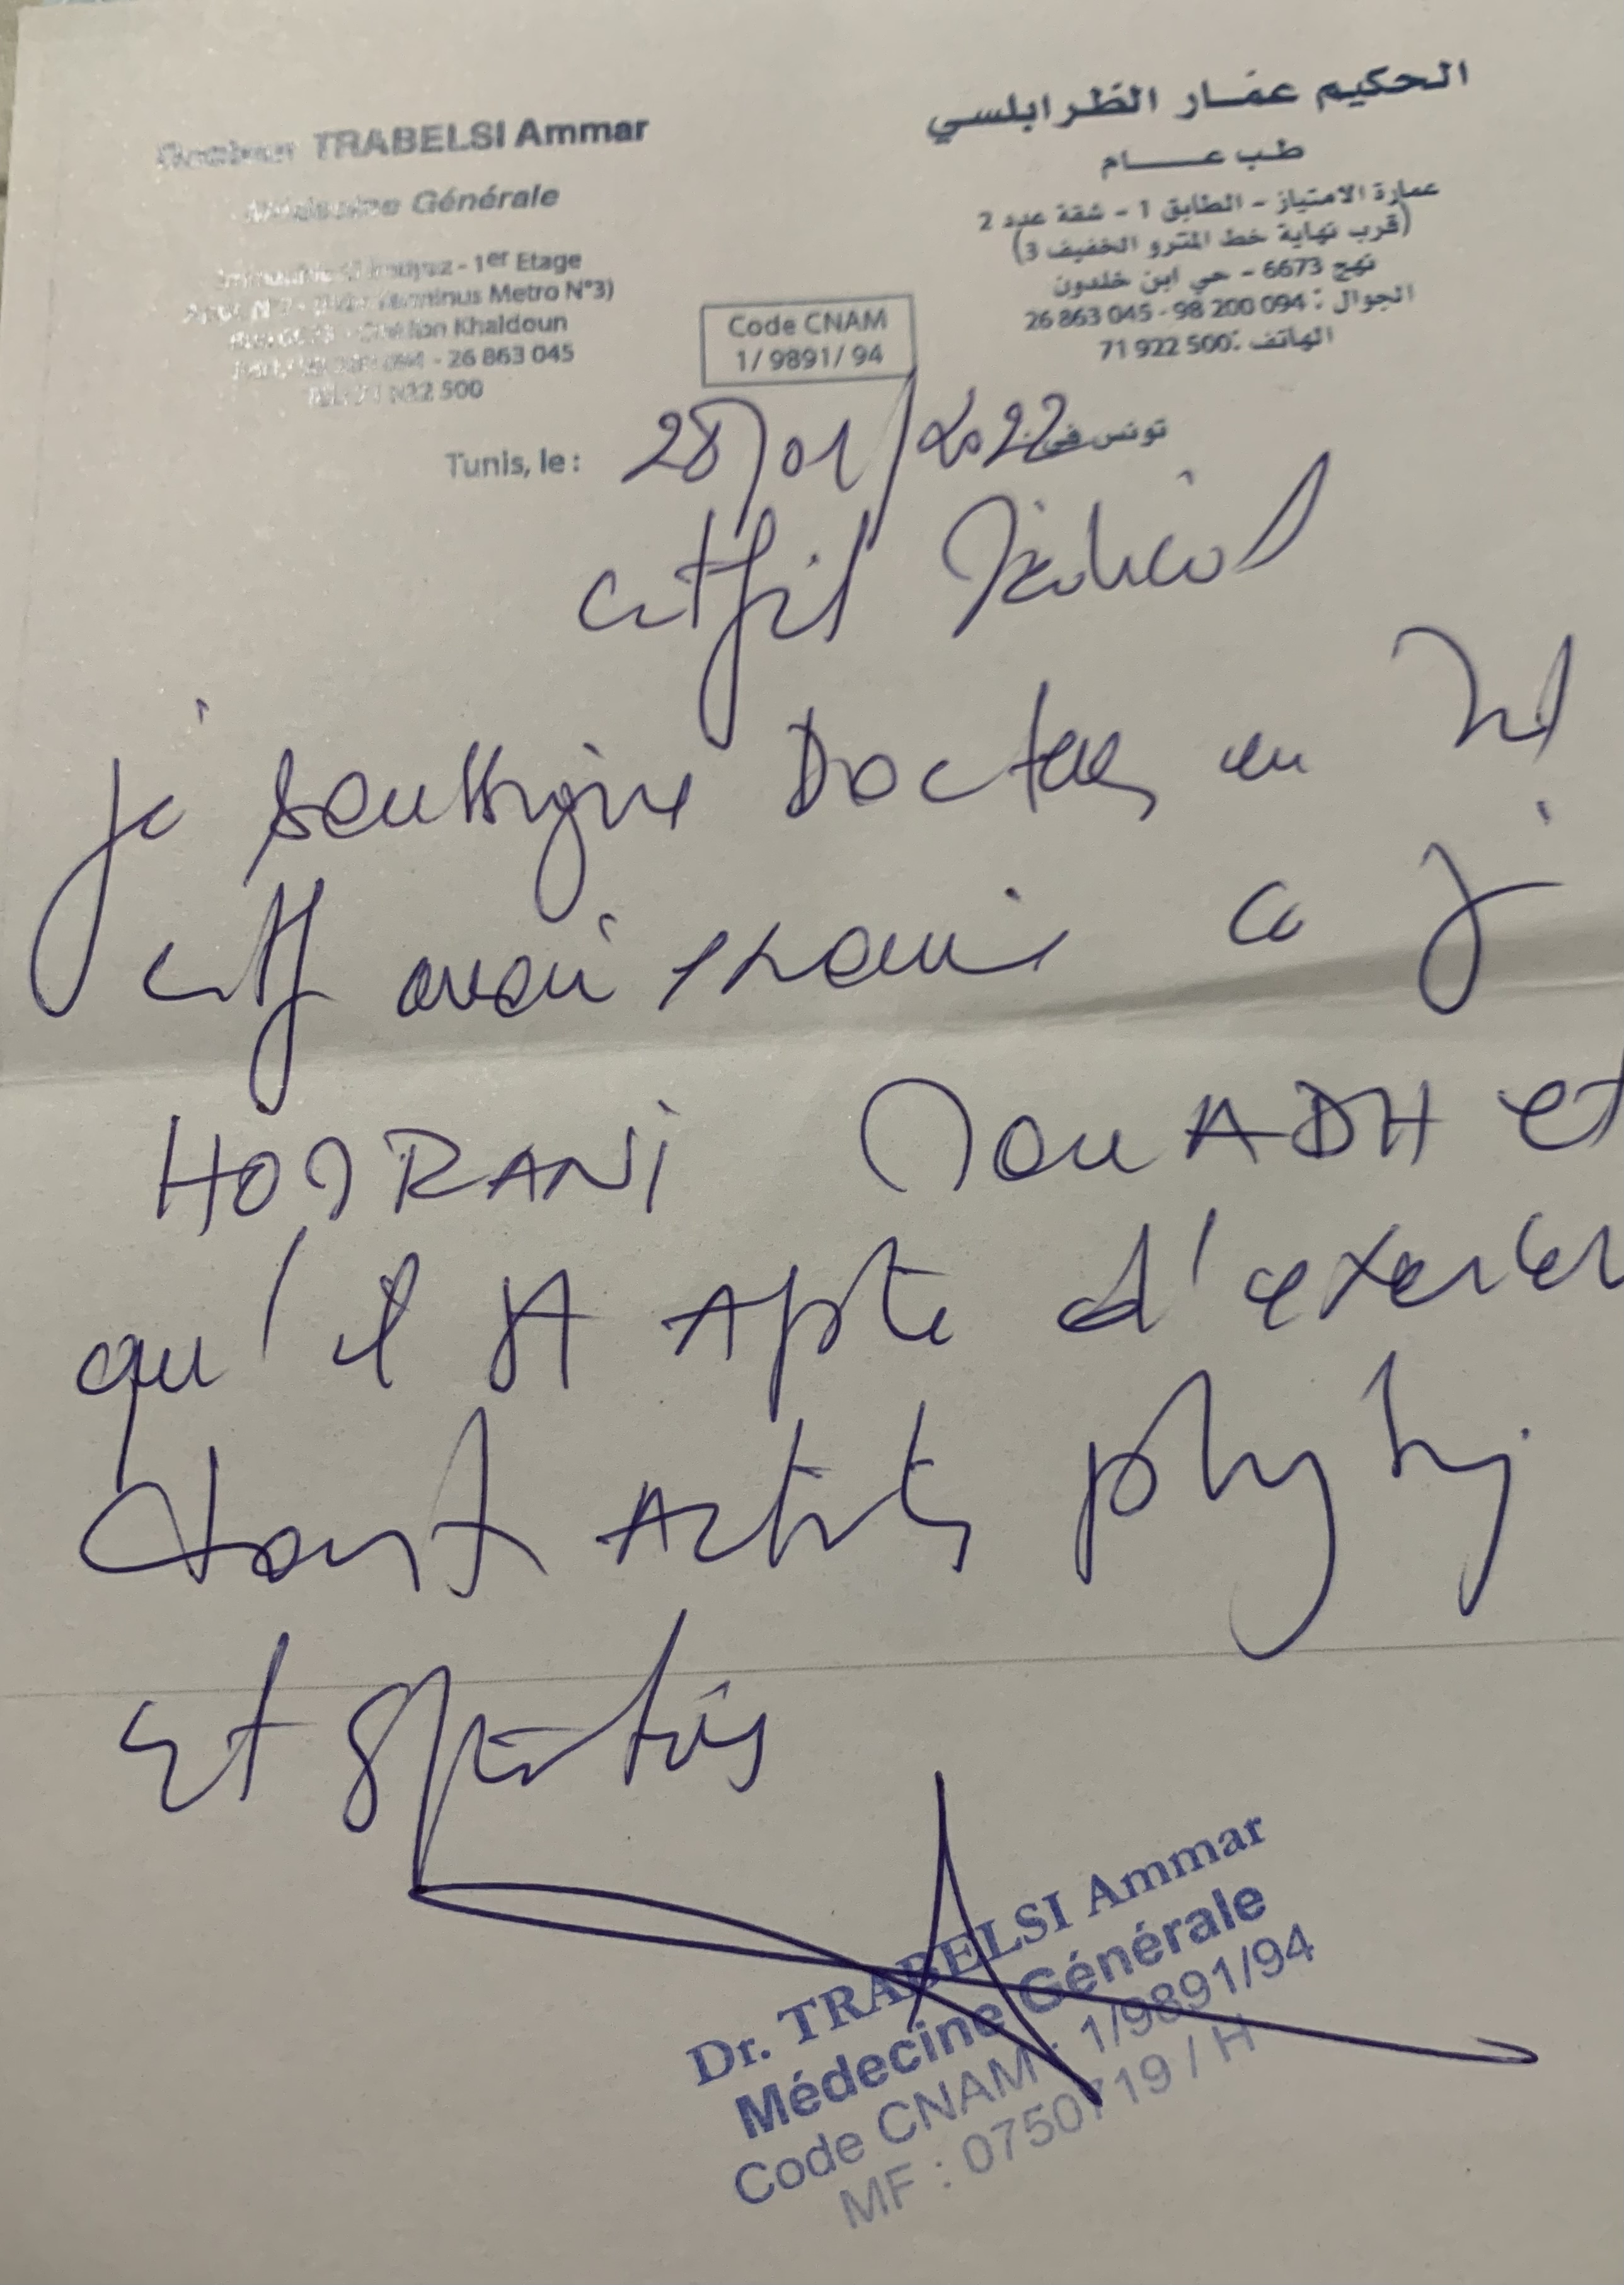 Docteur TRABELSI Ammar
Médecine Générale
- 1er Etage
Terminus Metro N°3)
Ibn Khaldoun
094 - 26 863 045
500
الحكيم عمّار الطّرابلسي
طب عـــــام
عمارة الامتياز - الطابق 1 - شقة عدد 2
(قرب نهاية خط المترو الخفيف 3)
نهج 6673 - حي ابن خلدون
الجوال : 094 200 98 - 045 863 26
الهاتف :500 922 71
Code CNAM
1/ 9891/ 94
Tunis, le : 28/01/2022 تونس في :
Certificat Médical
je soussigné Docteur en Med
certifie avoir examiné ce j
HOJRANI MouADH et
qu'il est Apte d'exercer
tout Activités physiq
Et sportives
Dr. TRABELSI Ammar
Médecine Générale
Code CNAM : 1/9891/94
MF : 0750719 / H